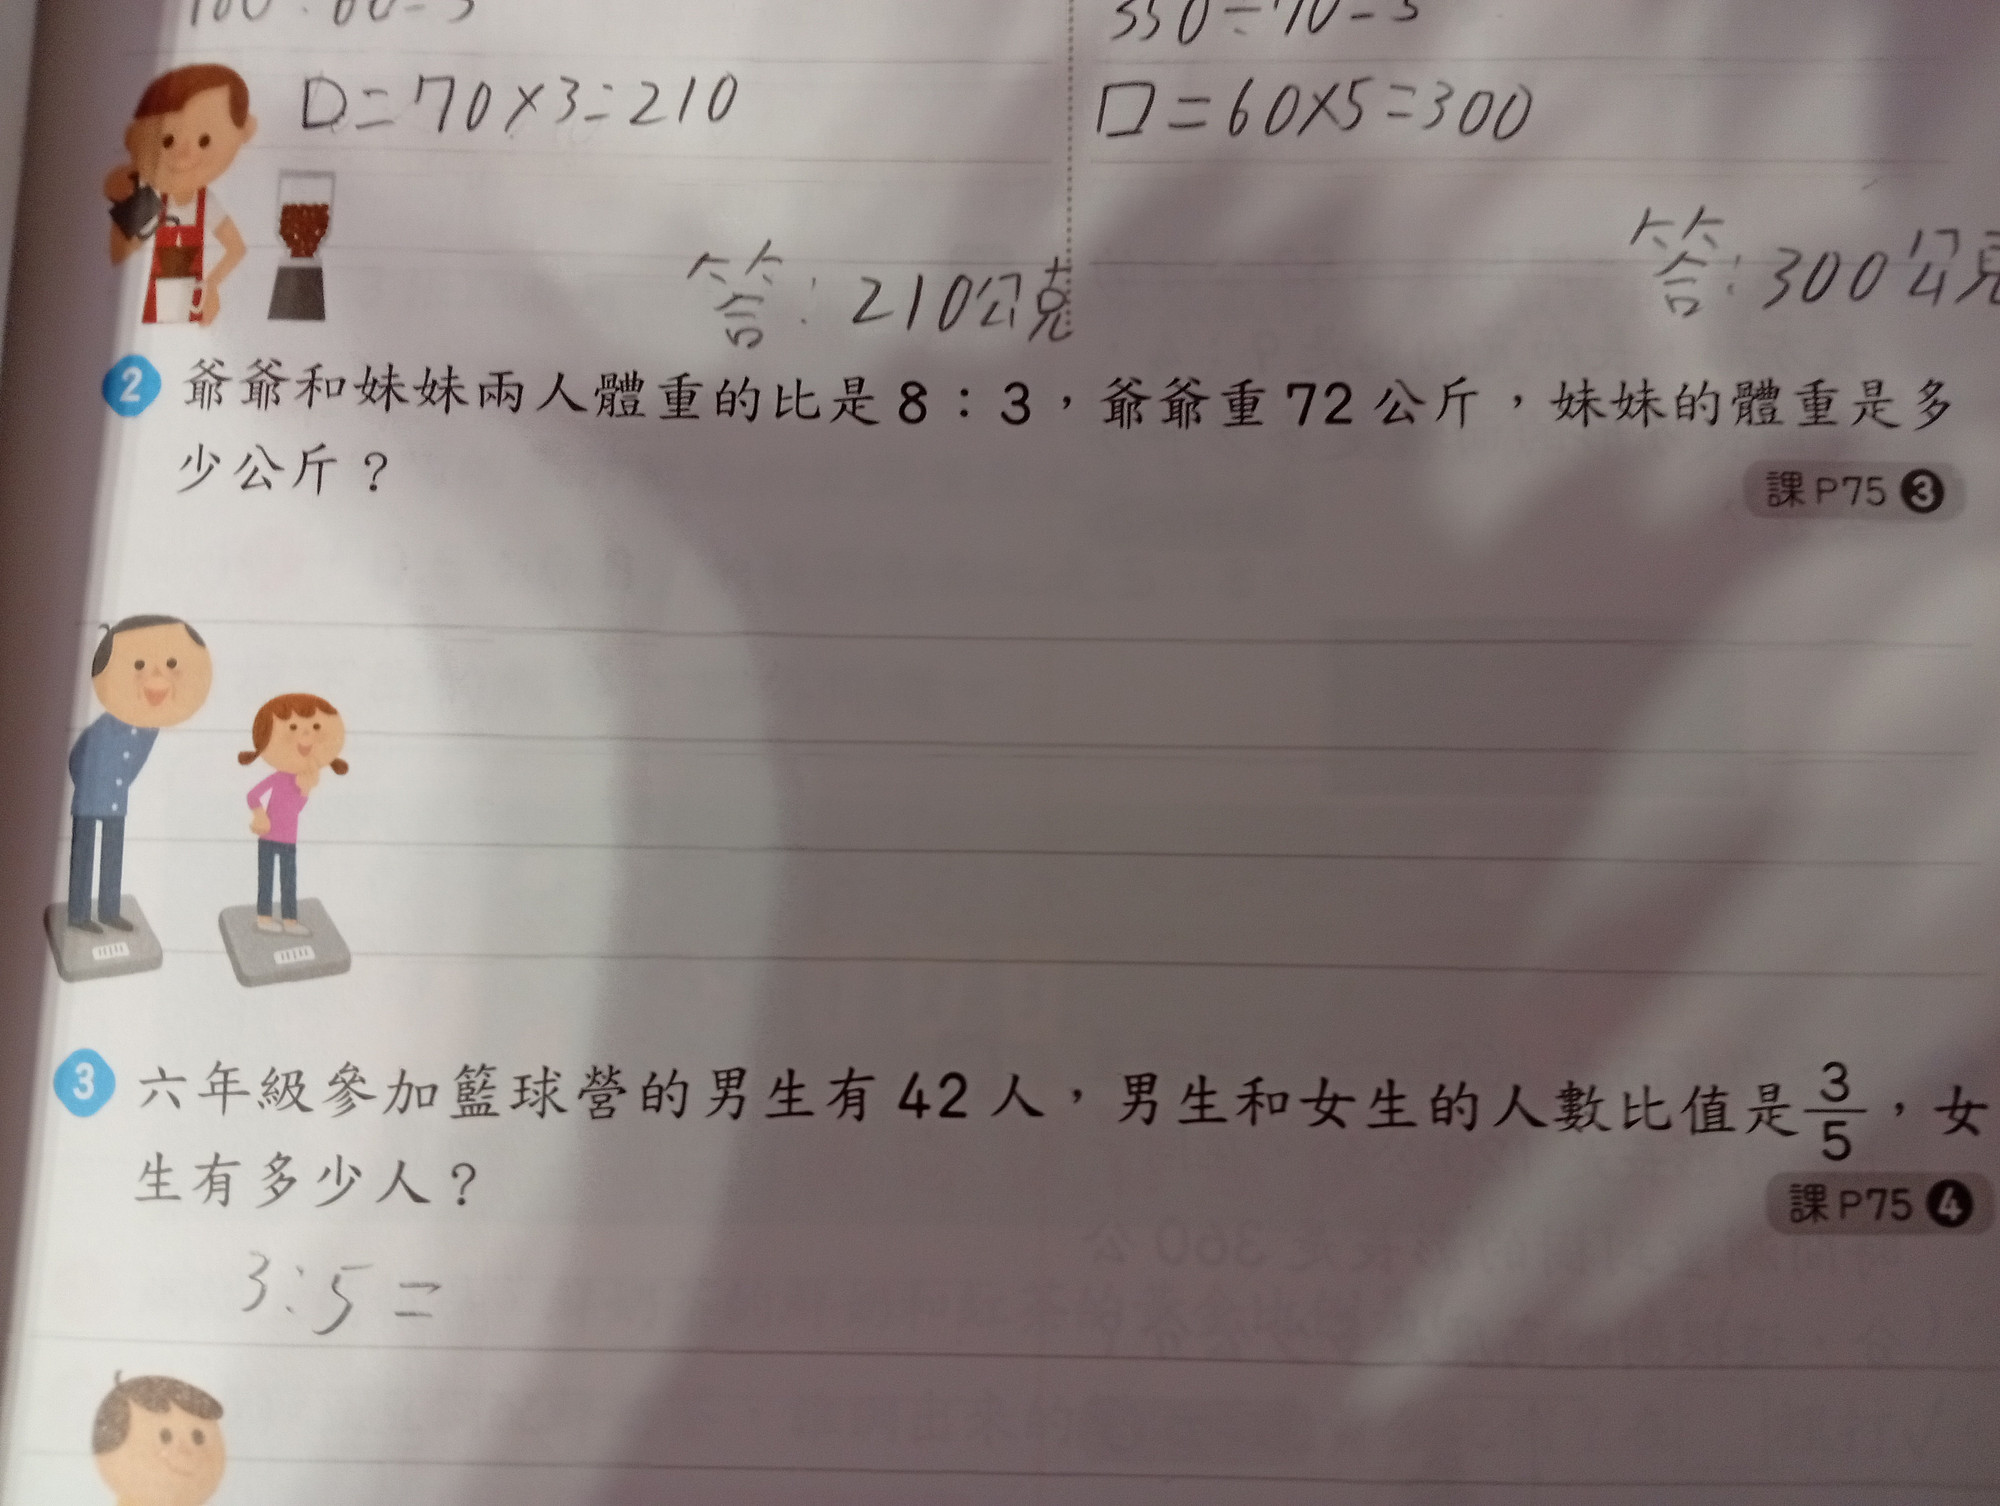 180÷60=3
350÷70=5
口=70×3=210
口=60×5=300
答:210公克
答:300公克
2 爺爺和妹妹兩人體重的比是8:3,爺爺重72公斤,妹妹的體重是多
少公斤?
課P75 3
3 六年級參加籃球營的男生有42人,男生和女生的人數比值是3/5,女
生有多少人?
課P75 4
3:5=